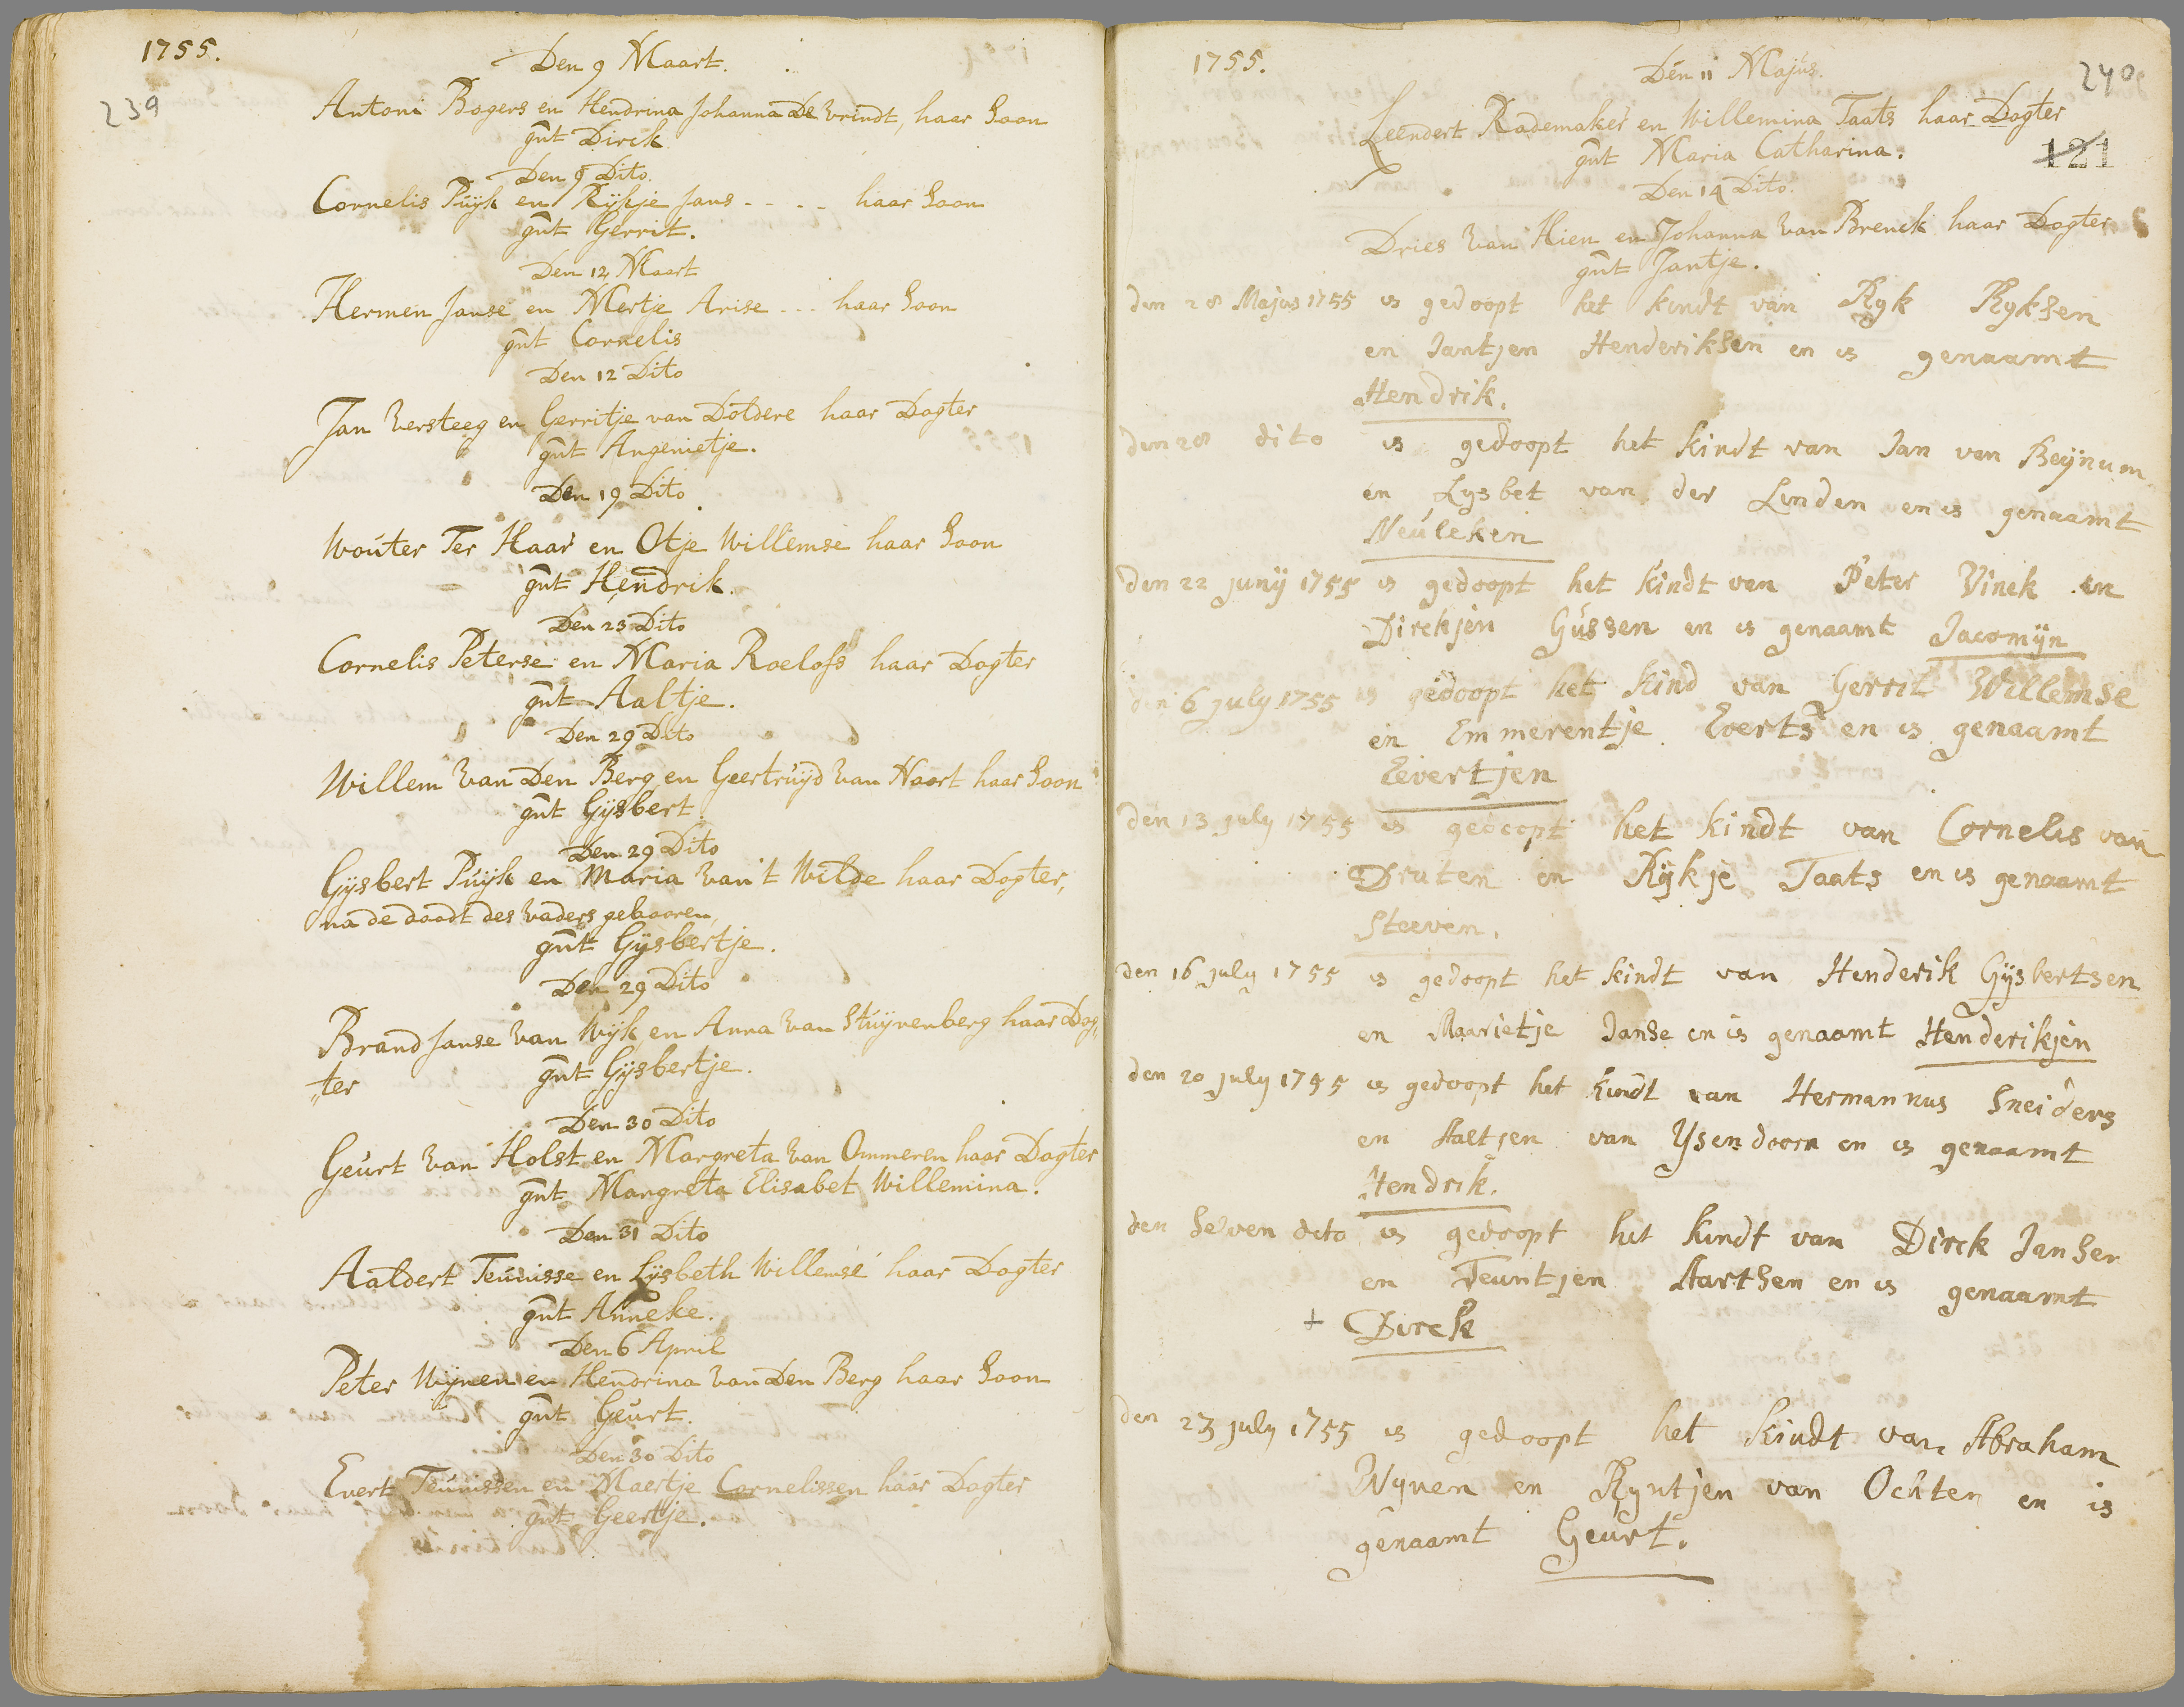 1755.
239
Den 9 Maart.
Antoni Bogers en Hendrina Johanna De Vrindt, haar Soon
gnt Dirck
Den 9 Dito.
Cornelis Puÿk en Rÿkje Jans - - - - haar Soon
gnt Gerrit.
Den 12 Maart
Hermen Janse en Mertje Arise - - - haar Soon
gnt Cornelis
Den 12 Dito
Jan Versteeg en Gerritje van Doldere haar Dogter
gnt Angenietje.
Den 19 Dito
Wouter Ter Haar en Otje Willemse haar Soon
gnt Hendrik.
Den 23 Dito
Cornelis Peterse en Maria Roelofs haar Dogter
gnt Aaltje.
Den 29 Dito
Willem Van Den Berg en Geertruÿd Van Noort haar Soon
gnt Gÿsbert.
Den 29 Dito
Gÿsbert Puÿk en Maria Van 't Wilde haar Dogter,
na de doodt des Vaders gebooren,
gnt Gÿsbertje.
Den 29 Dito
Brand Janse Van Wÿk en Anna Van Stuÿvenberg haar Dog„
„ter gnt Gÿsbertje.
Den 30 Dito
Geurt Van Holst en Margreta Van Ommeren haar Dogter
gnt Margreta Elisabet Willemina.
Den 31 Dito
Aaldert Teunisse en Lÿsbeth Willemse haar Dogter
gnt Anneke.
Den 6 April
Peter Wÿnen en Hendrina Van Den Berg haar Soon
gnt Geurt.
Den 30 Dito
Evert Teunissen en Maertje Cornelissen haar Dogter
gnt Geertje.
1755.
240
121
Den 11 Majus.
Leendert Rademaker en Willemina Taats haar Dogter
gnt Maria Catharina.
Den 14 Dito.
Dries Van Hien en Johanna Van Brenck haar Dogter
gnt Jantje.
den 28 Majus 1755 is gedoopt het kindt van Ryk Ryksen
en Jantjen Henderiksen en is genaamt
Hendrik.
den 28 dito is gedoopt het kindt van Jan van Beÿnum
en Lysbet van der Linden en is genaamt
Neuleken
den 22 junÿ 1755 is gedoopt het kindt van Peter Vinck en
Dirckjen Gussen en is genaamt Jacomÿn
den 6 july 1755 is gedoopt het kind van Gerrit Willemse
en Emmerentje Everts en is genaamt
Eevertjen
den 13 july 1755 is gedoopt het kindt van Cornelis van
Druten en Rÿkje Taats en is genaamt
Steeven.
den 16 july 1755 is gedoopt het kindt van Henderik Gÿsbertsen
en Maarietje Janse en is genaamt Henderikjen
den 20 july 1755 is gedoopt het kindt van Hermannus Sneiders
en Aaltjen van Ysendoorn en is genaamt
Hendrik.
den selven dito is gedoopt het kindt van Dirck Jansen
en Teuntjen Aartsen en is genaamt
+ Dirck
den 23 july 1755 is gedoopt het kindt van Abraham
Wynen en Ryntjen van Ochten en is
genaamt Geurt.